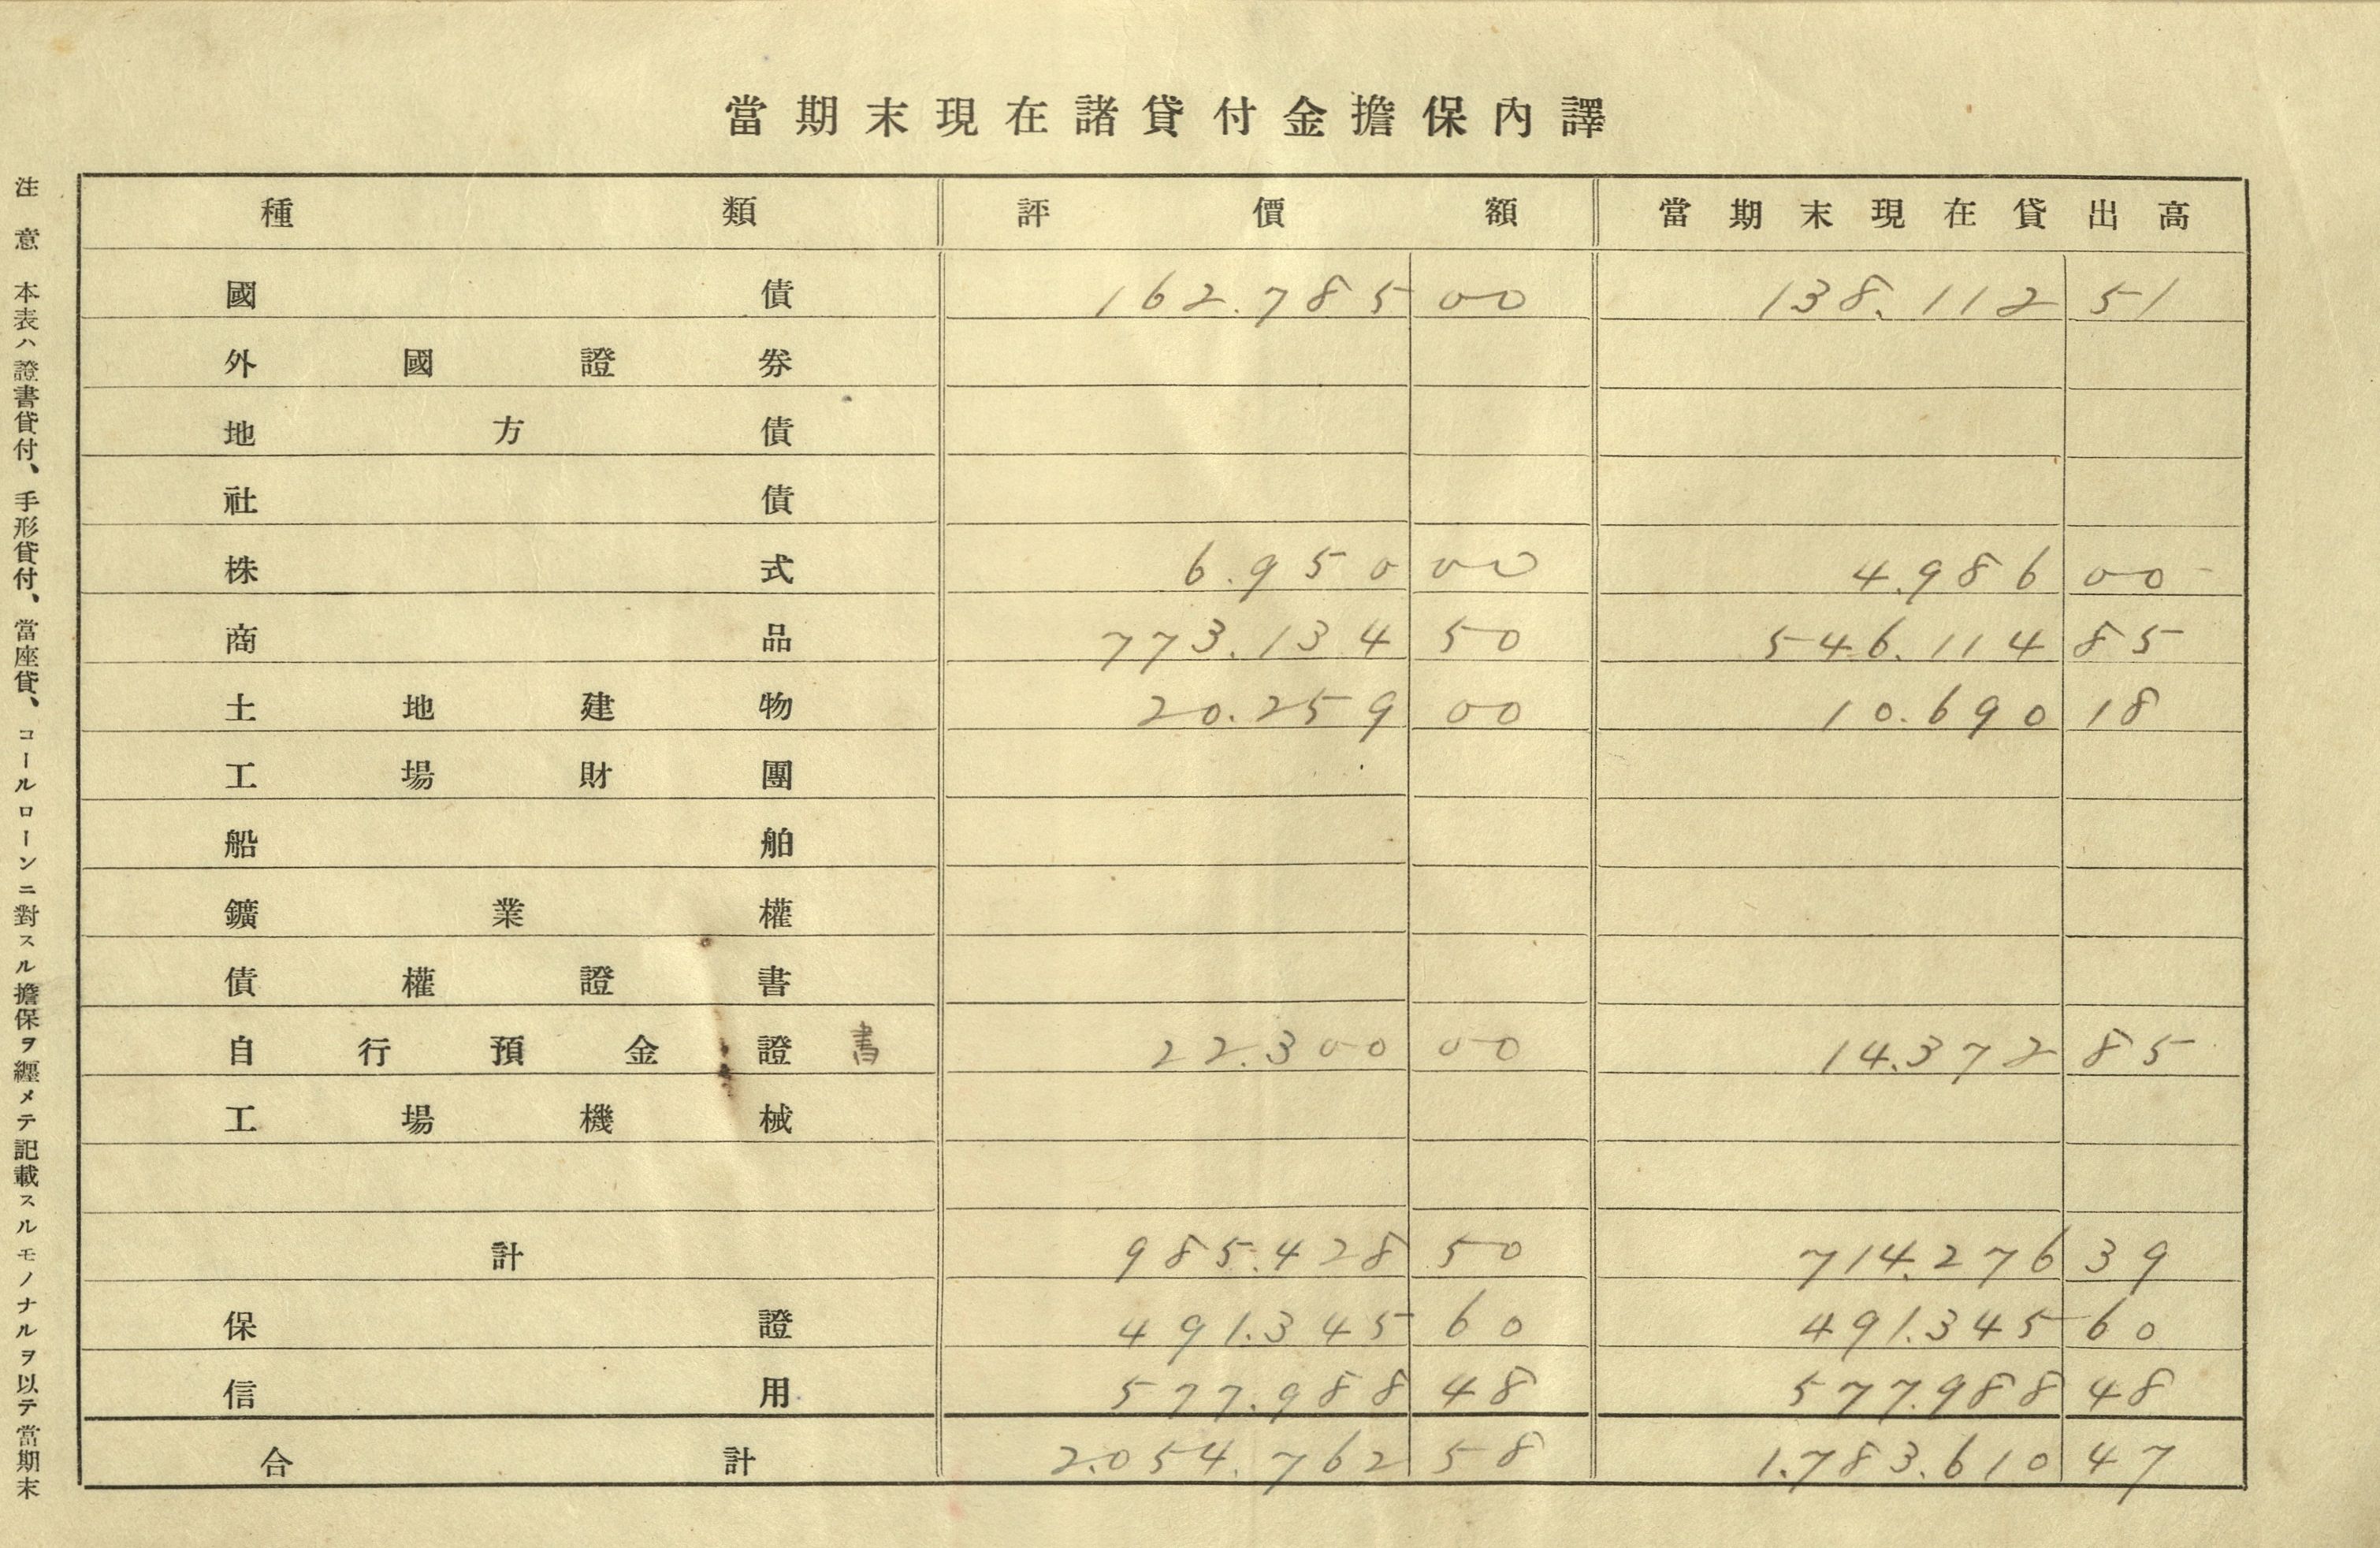 當期末現在諸貸付金擔保內譯
種類 評價額 當期末現在貸出高
國債 162.785 00 138.112 51
外國證券
地方債
社債
株式 6.950 00 4.986 00
商品 773.134 50 546.114 85
土地建物 20.259 00 10.690 18
工場財團
船舶
鑛業權
債權證書
自行預金證書 22.300 00 14.372 85
工場機械
計 985.428 50 714.276 39
保證 491.345 60 491.345 60
信用 577.988 48 577.988 48
合計 2.054.762 58 1.783.610 47
注意 本表ハ證書貸付、手形貸付、當座貸、コールローンニ對スル擔保ヲ纒メテ記載スルモノナルヲ以テ當期末